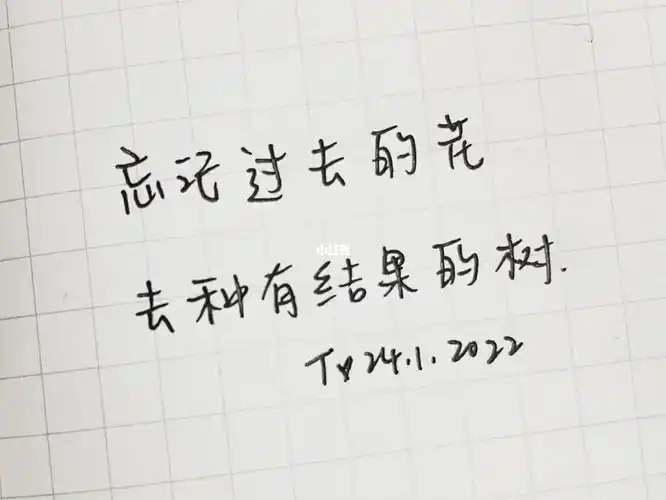 忘记过去的花
小红书
去种有结果的树.
24.1.2022